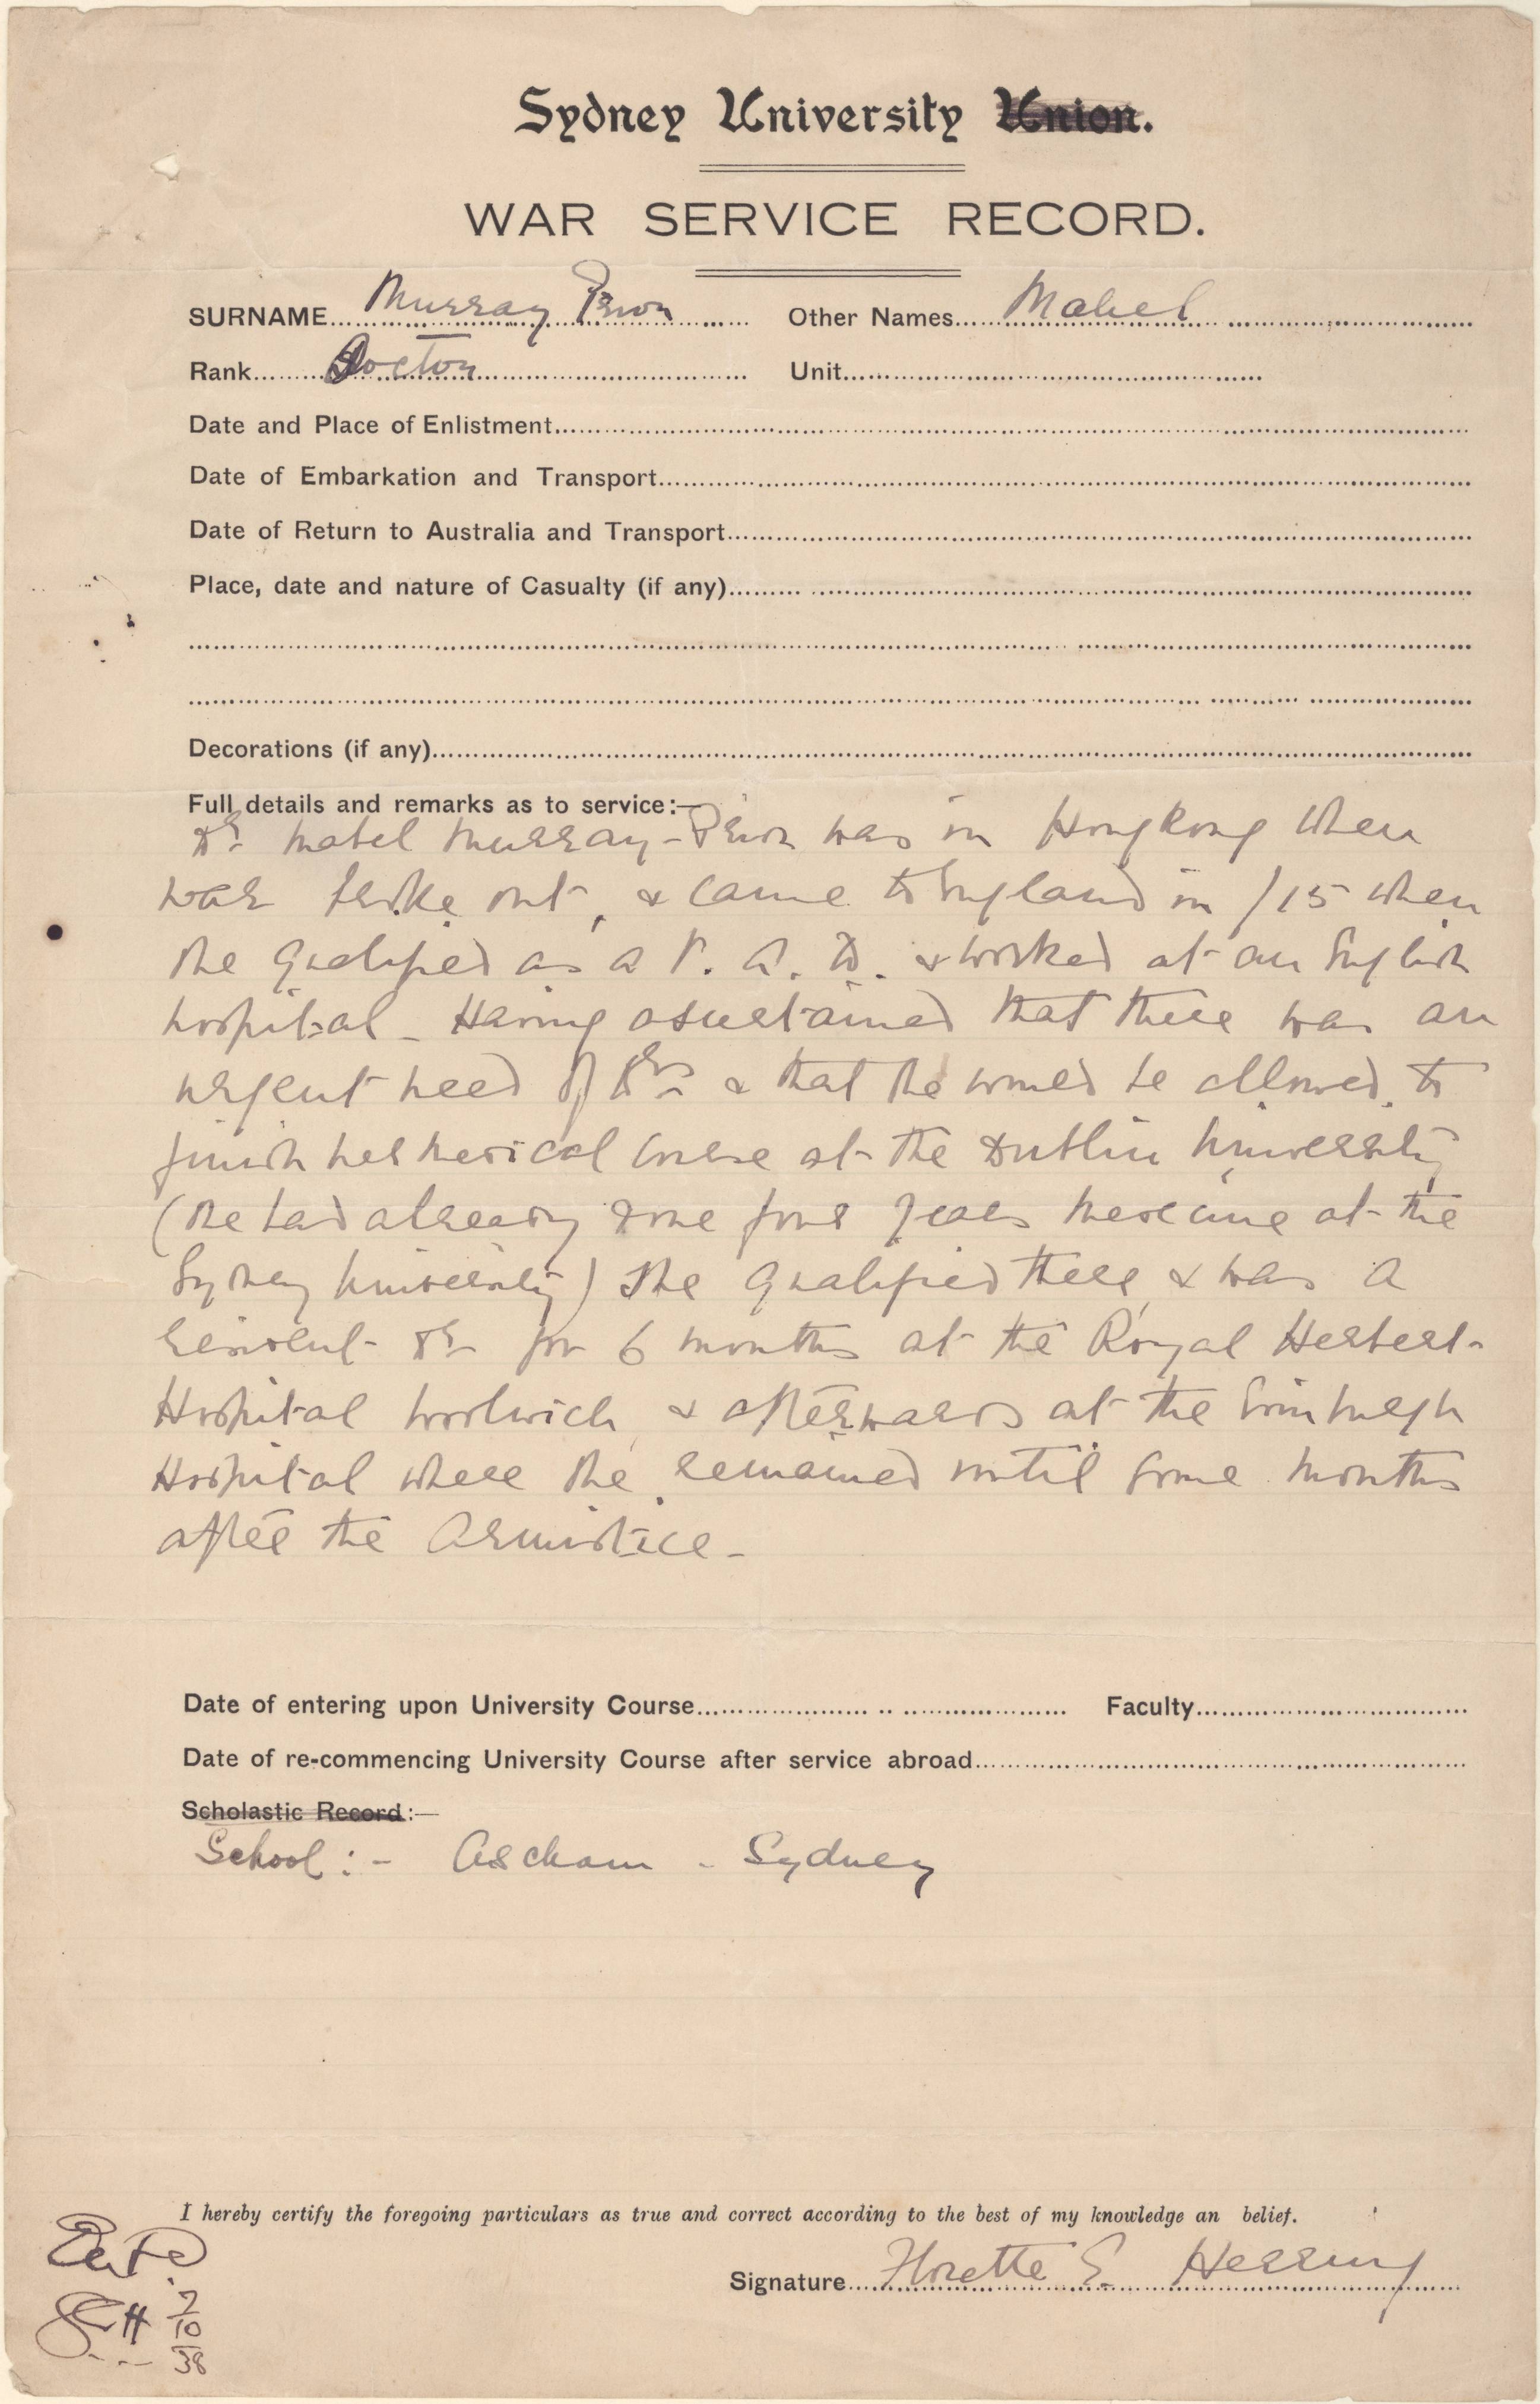 Sydney University Union.
WAR SERVICE RECORD.
SURNAME Murray Prior Other Names Mabel
Rank Doctor Unit
Date and Place of Enlistment
Date of Embarkation and Transport
Date of Return to Australia and Transport
Place, date and nature of Casualty (if any)
Decorations (if any)
Full details and remarks as to service:—
Dr. Mabel Murray-Prior was in Hongkong when
war broke out, & came to England in /15 when
she qualified as a V. A. D. & worked at an English
hospital - Having ascertained that there was an
urgent need of Drs & that she would be allowed to
finish her medical course at the Dublin University
(she had already done four years medicine at the
Sydney University) she qualified there, & was a
resident Dr for 6 months at the Royal Herbert
Hospital Woolwich, & afterwards at the Edinburgh
Hospital where she remained until some months
after the Armistice -
Date of entering upon University Course Faculty
Date of re-commencing University Course after service abroad
Scholastic Record:—
School :- Ascham - Sydney
I hereby certify the foregoing particulars as true and correct according to the best of my knowledge an belief.
Signature Florette E. Herring
7
10
38